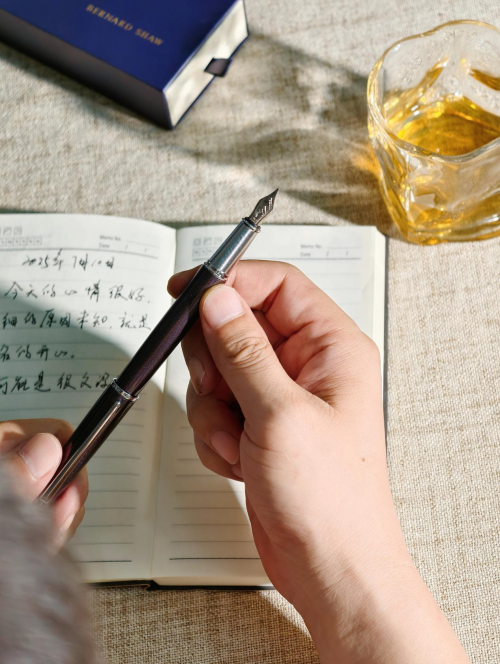 BERNARD SHAW
Memo No.
Memo No.
2025年7月10日
今天的心情很好,
细的原因未知,就是
的开心。
可能是很久没